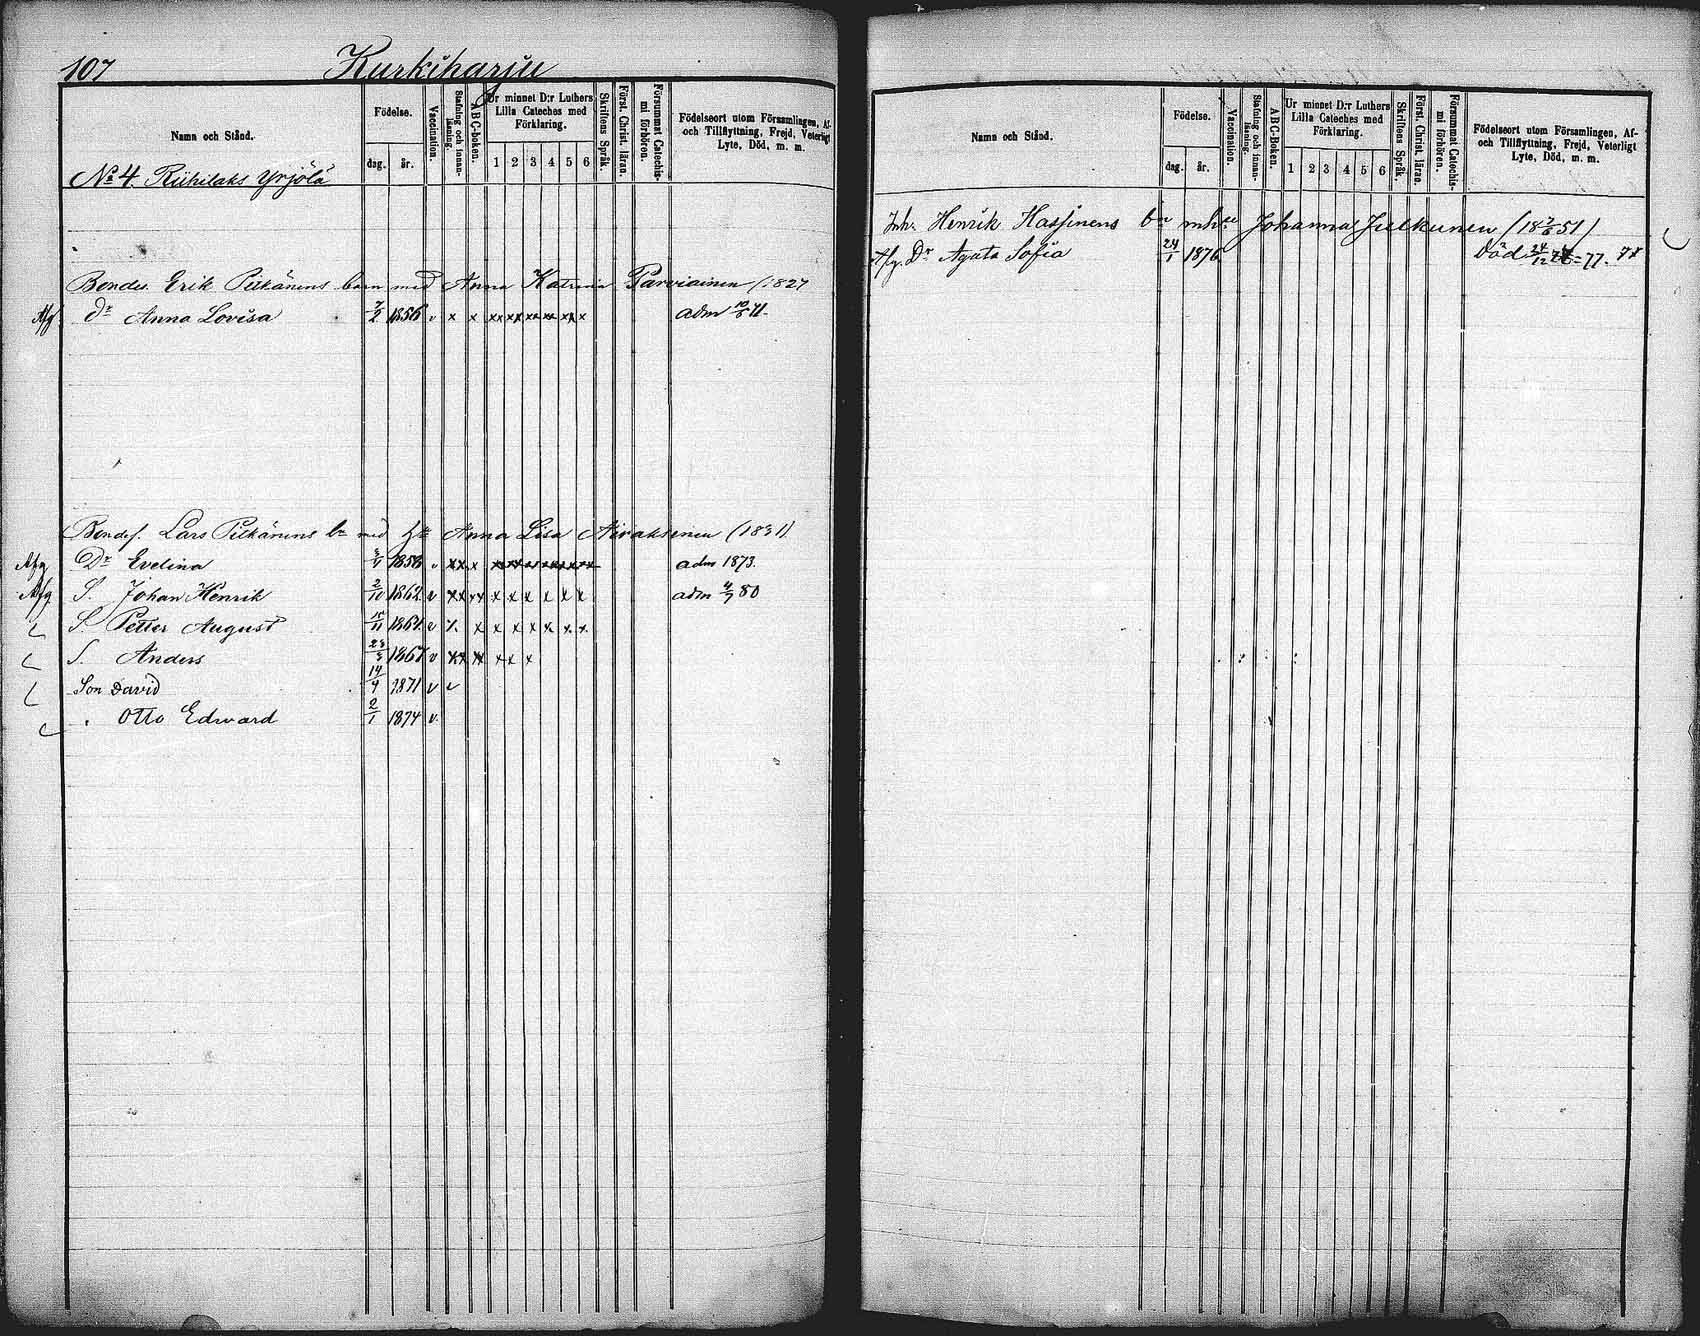 107 Kurkiharju
Namn och Stånd.
Födelse.
dag. år.
Vaccination.
Stafning och innanläsning.
ABC-boken.
Ur minnet D:r Luthers Lilla Cateches med Förklaring.
1 2 3 4 5 6
Skriftens Språk.
Först. Christ. läran.
Försummat Catechismi förhören.
Födelseort utom Församlingen, Af- och Tillflyttning, Frejd, Veterligt Lyte, Död, m. m.
No 4. Riihilaks Yrjölä
Bonden Erik Pitkänens barn med Anna Katrina Parviainen (1827
Afg dr Anna Lovisa 1856 v x x xx xx xx xx xx x adm 71.
Bondes. Lars Pitkänens bn med hu Anna Lisa Airaksinen (1831)
Afg Dr Evelina 1858 v xx x adm 1873.
Afg S. Johan Henrik 2/10 1862 v xx xx x x x x x x adm 80
S. Petter August 15/11 1864 v x x x x x x x x
S. Anders 1867 v xx xx x x x
Son David 14/9 1871 v v
" Otto Edward 2/1 1874 v.
Namn och Stånd.
Födelse.
dag. år.
Vaccination.
Stafning och innanläsning.
ABC-Boken.
Ur minnet D:r Luthers Lilla Cateches med Förklaring.
1 2 3 4 5 6
Skriftens Språk.
Först. Christ. läran.
Försummat Catechismi förhören.
Födelseort utom Församlingen, Af- och Tillflyttning, Frejd, Veterligt Lyte, Död, m. m.
Inh. Henrik Hassinens bn mhu Johanna Julkunen (18 51)
Afg. Dr Agata Sofia 24/1 1876 Död 24/12 77.